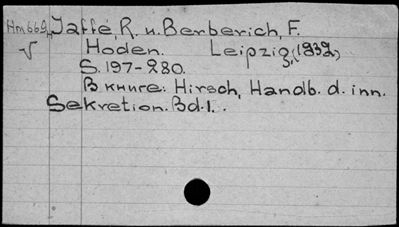 Hm662, Jaffé, R. u. Berberich, F.
Hoden. Leipzig, (1932,)
S. 197-280.
В книге: Hirsch, Handb. d. inn.
Sekretion. Bd. 1.